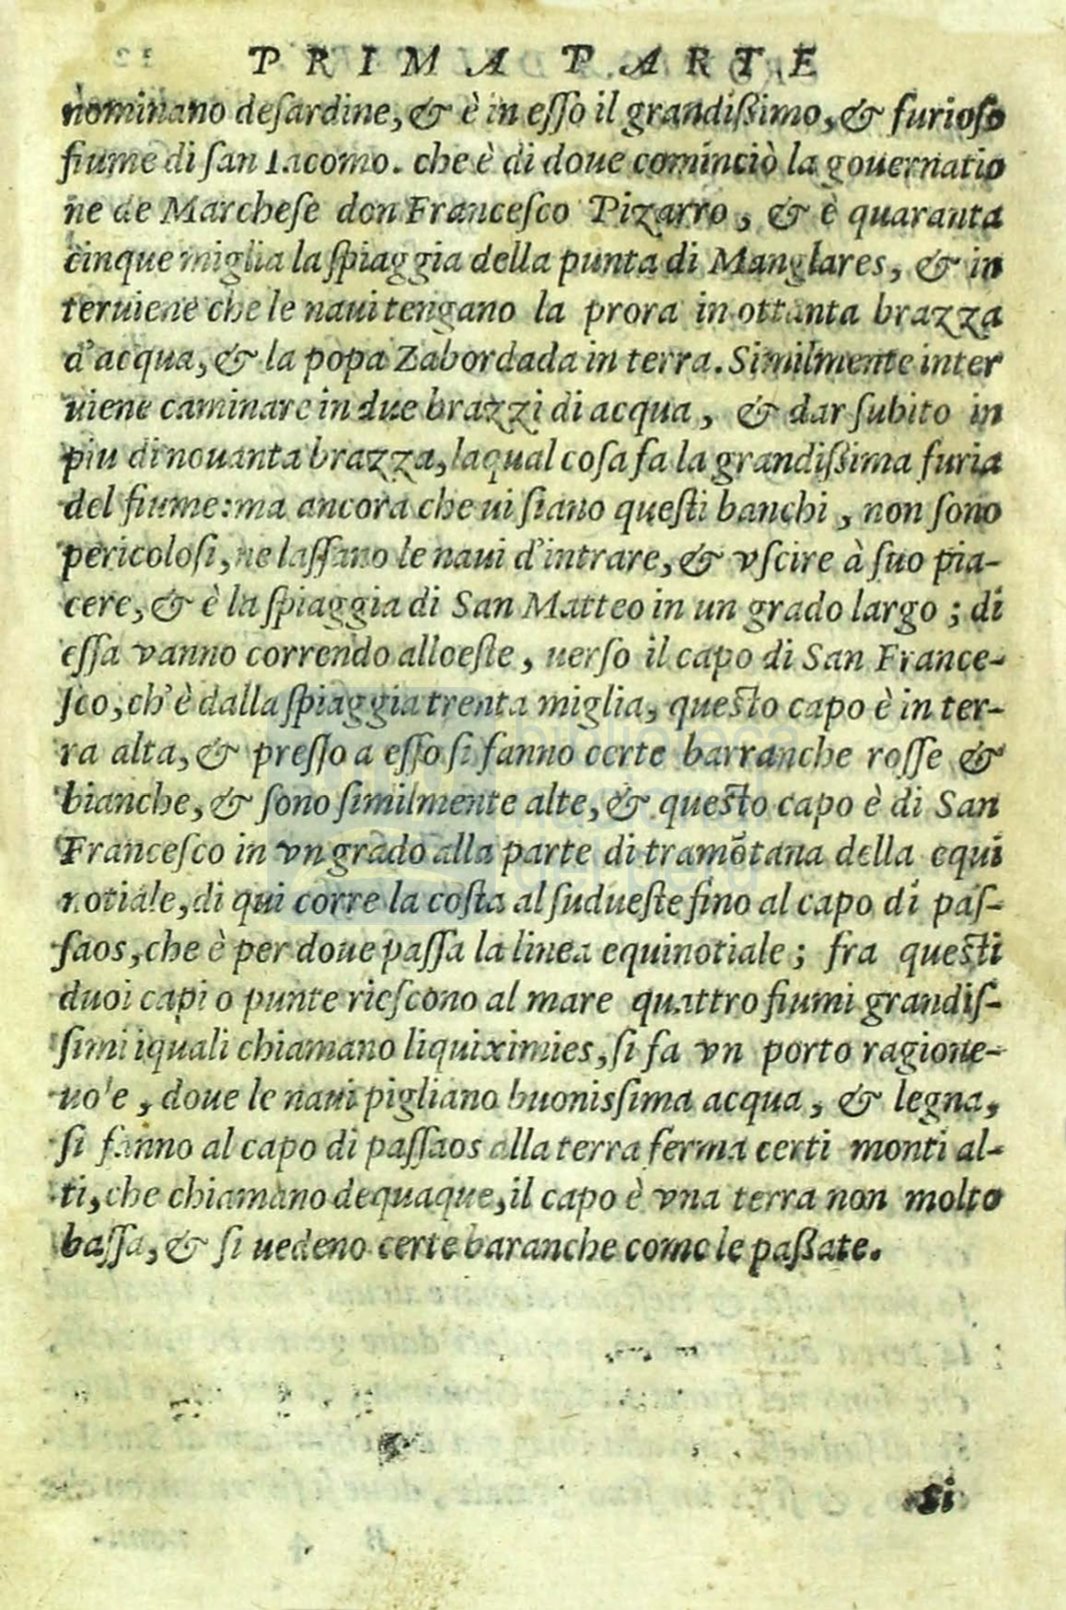 PRIMA PARTE
nominano desardine, & è in esso il grandißimo, & furioso
fiume di san Iacomo. che è di doue cominciò la gouernatio
ne de Marchese don Francesco Pizarro, & è quaranta
cinque miglia la spiaggia della punta di Manglares, & in
teruiene che le naui tengano la prora in ottanta brazza
d'acqua, & la popa Zabordada in terra. Similmente inter
uiene caminare in due brazzi di acqua, & dar subito in
piu di nouanta brazza, laqual cosa fa la grandißima furia
del fiume: ma ancora che ui siano questi banchi, non sono
pericolosi, ne lassano le naui d'intrare, & vscire à suo pia-
cere, & è la spiaggia di San Matteo in un grado largo; di
essa vanno correndo alloeste, uerso il capo di San France-
sco, ch'è dalla spiaggia trenta miglia, questo capo è in ter-
ra alta, & presso a esso si fanno certe barranche rosse &
bianche, & sono similmente alte, & questo capo è di San
Francesco in vn grado alla parte di tramōtana della equi
notiale, di qui corre la costa al sudueste fino al capo di pas-
saos, che è per doue passa la linea equinotiale; fra questi
duoi capi o punte riescono al mare quattro fiumi grandis-
simi iquali chiamano liquiximies, si fa vn porto ragione-
uo'e, doue le naui pigliano buonissima acqua, & legna,
si fanno al capo di passaos alla terra ferma certi monti al-
ti, che chiamano dequaque, il capo è vna terra non molto
bassa, & si uedeno certe baranche come le paßate.
si